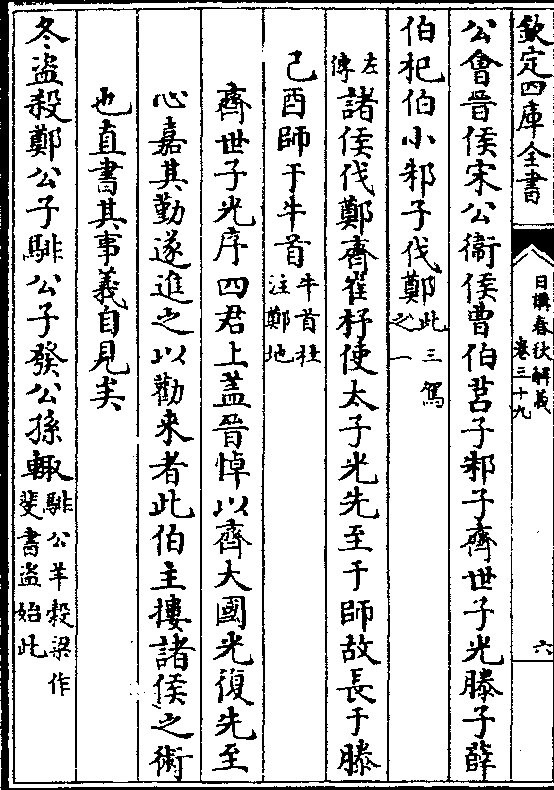 欽定四庫全書
日講春秋解義
卷三十九
六
公會晉侯宋公衞侯曹伯莒子邾子齊世子光滕子薛
伯杞伯小邾子伐鄭此三駕之一
左傳諸侯伐鄭齊崔杼使太子光先至于師故長于滕
己酉師于牛首牛首杜注鄭地
齊世子光序四君上蓋晉悼以齊大國光復先至
心嘉其勤遂進之以勸来者此伯主摟諸侯之術
也直書其事義自見矣
冬盗殺鄭公子騑公子發公孫輙騑公羊榖梁作斐書盗始此